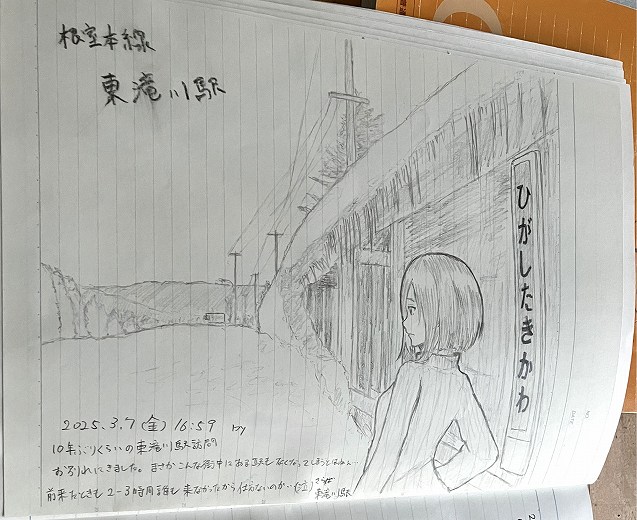 根室本線
東滝川駅
ひがしたきかわ
2025.3.7(金) 16:59 by
10年ぶりくらいの東滝川駅訪問
お別れにきました。まさかこんな街中にある駅もなくなってしまうとはねぇ…
前来たときも2~3時間誰も来なかったから仕方ないのか…(泣)
さらば
東滝川駅